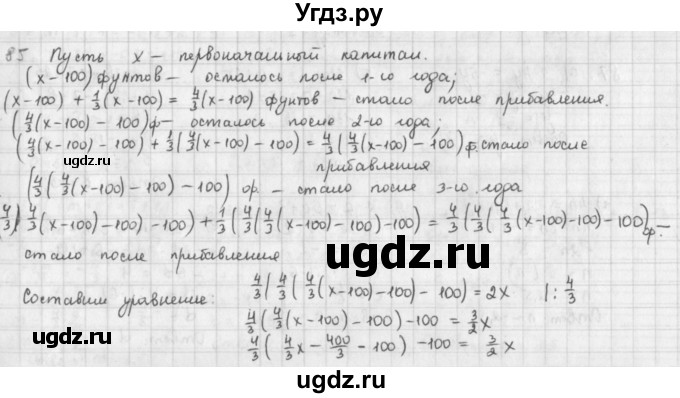 Угдз.ру
85 Пусть x — первоначальный капитал.
(x-100) фунтов — осталось после 1-го года;
(x-100) + 1/3(x-100) = 4/3(x-100) фунтов — стало после прибавления.
(4/3(x-100) - 100) ф — осталось после 2-го года;
(4/3(x-100) - 100) + 1/3(4/3(x-100) - 100) = 4/3(4/3(x-100) - 100) ф. стало после
прибавления
(4/3(4/3(x-100) - 100) - 100) ф. — стало после 3-го года
4/3(4/3(x-100) - 100) - 100) + 1/3(4/3(4/3(x-100) - 100) - 100) = 4/3(4/3(4/3(x-100) - 100) - 100) ф. —
стало после прибавления
Составим уравнение: 4/3(4/3(4/3(x-100) - 100) - 100) = 2x |: 4/3
4/3(4/3(x-100) - 100) - 100 = 3/2 x
4/3(4/3 x - 400/3 - 100) - 100 = 3/2 x
uгдз.ru
uгдз.ru
uгдз.ru
uгдз.ru
uгдз.ru
uгдз.ru
uгдз.ru
uгдз.ru